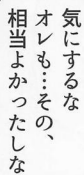 気にするな
オレも…その、
相当よかったしな